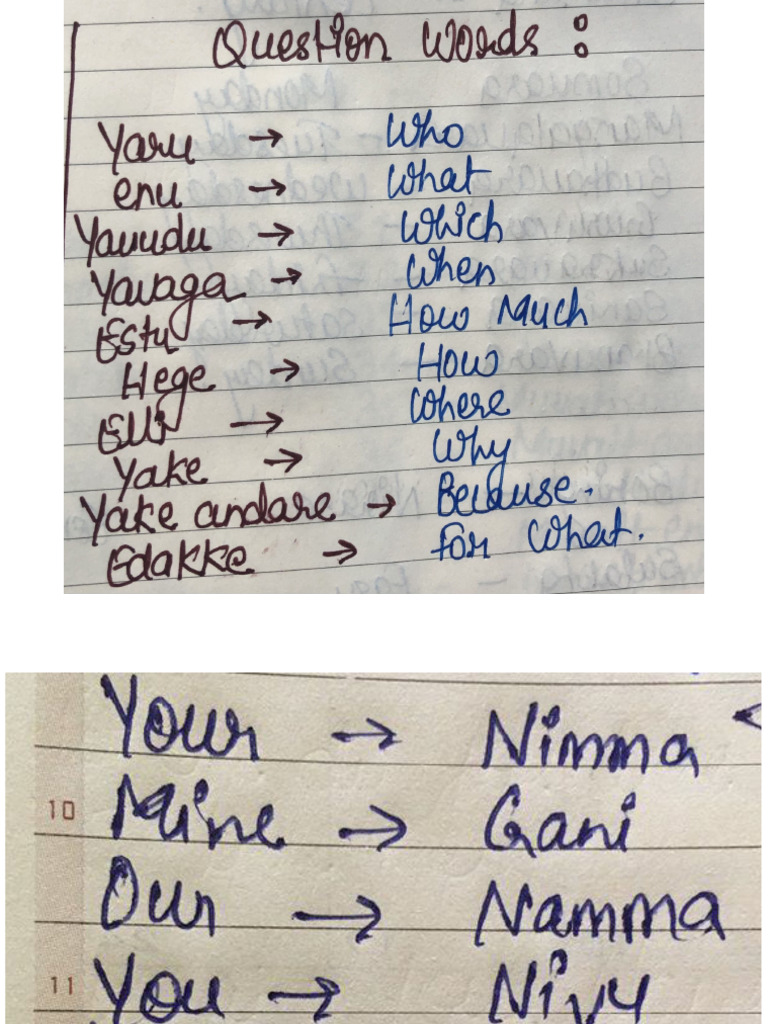 Question Words :
Yaru → Who
enu → What
Yavudu → Which
Yavaga → When
Estu → How Much
Hege → How
Elli → Where
Yake → Why
Yake andare → Because.
Edakke → for what.
Your → Nimma <
10 Mine → Gani
Our → Namma
11 You → Nivu